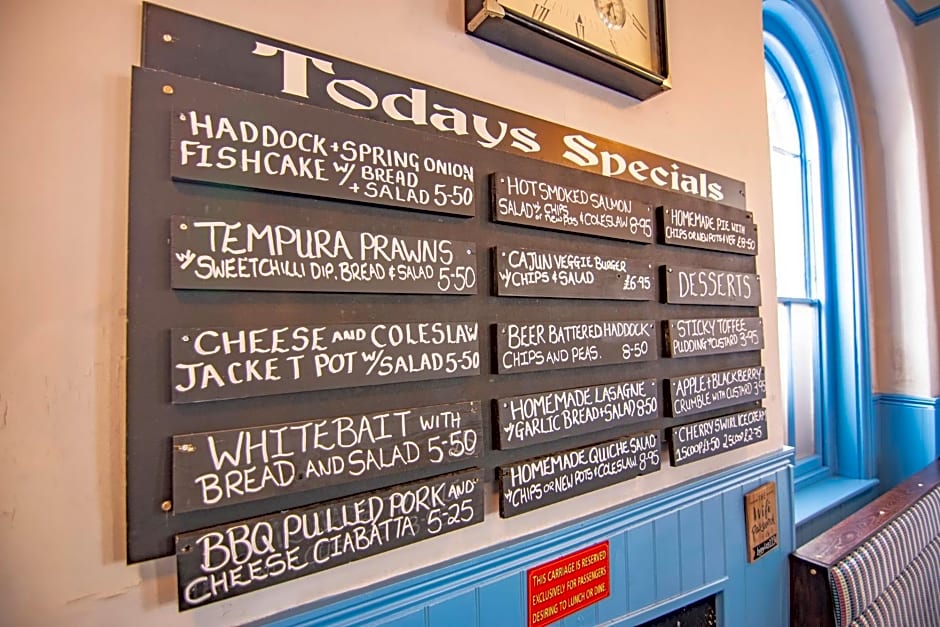 Todays Specials
HADDOCK + SPRING ONION
FISHCAKE W/ BREAD
+ SALAD 5-50
TEMPURA PRAWNS
W/ SWEETCHILLI DIP, BREAD & SALAD 5-50
CHEESE AND COLESLAW
JACKET POT W/ SALAD 5-50
WHITEBAIT WITH
BREAD AND SALAD 5-50
BBQ PULLED PORK AND
CHEESE CIABATTA 5-25
HOT SMOKED SALMON
SALAD W/ CHIPS
OR NEW POTS & COLESLAW 8-95
CAJUN VEGGIE BURGER
W/ CHIPS & SALAD £6.95
BEER BATTERED HADDOCK
CHIPS AND PEAS. 8-50
HOMEMADE LASAGNE
W/ GARLIC BREAD + SALAD 8-50
HOMEMADE QUICHE SALAD
W/ CHIPS OR NEW POTS & COLESLAW 8-95
HOMEMADE PIE WITH
CHIPS OR NEW POTS & VEG £8-50
DESSERTS
STICKY TOFFEE
PUDDING W/ CUSTARD 3-95
APPLE + BLACKBERRY
CRUMBLE WITH CUSTARD 3-95
CHERRY SWIRL ICE CREAM
1 SCOOP £1-50 2 SCOOP £2-95
THIS CARRIAGE IS RESERVED
EXCLUSIVELY FOR PASSENGERS
DESIRING TO LUNCH OR DINE
THE
Wifi
Password